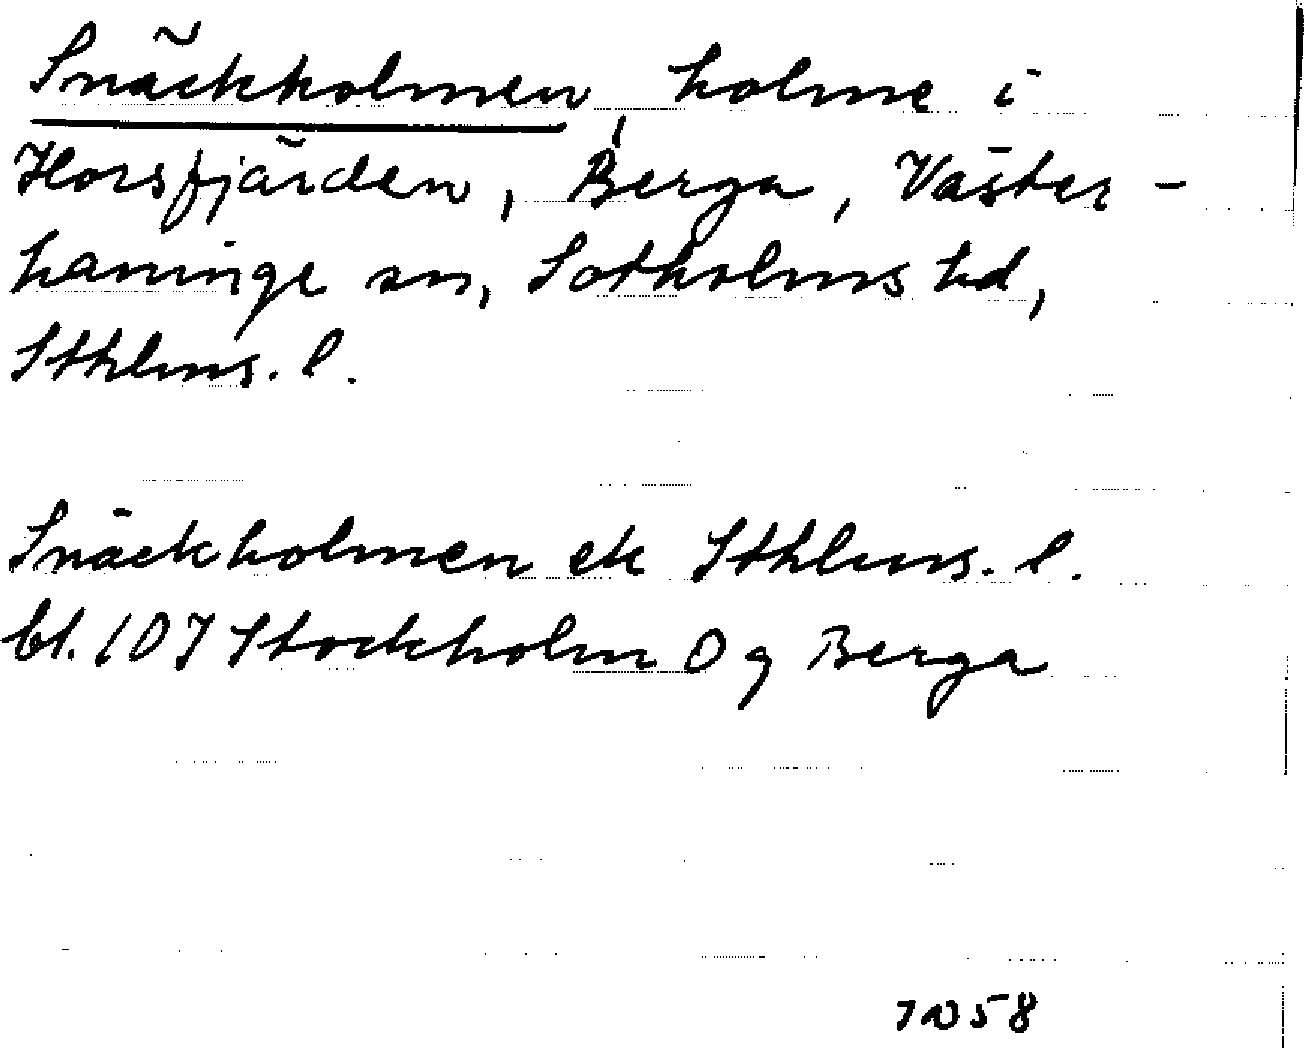 Snäckholmen, holme i
Horsfjärden, Berga, Väster-
haninge sn, Sotholms hd,
Sthlms. l.
Snäckholmen ek Sthlms. l.
bl. 107 Stockholm Og Berga
58